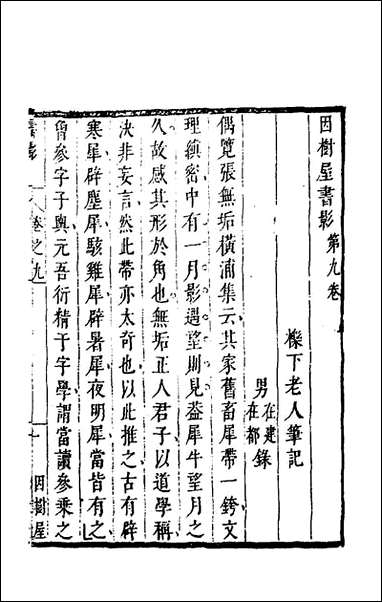 因樹屋書影第九卷
櫟下老人筆記
男在建錄
在都
偶覽張無垢橫浦集云其家舊畜犀帶一銙文
理縝密中有一月影遇望則見蓋犀牛望月之
久故感其形於角也無垢正人君子以道學稱
決非妄言然此帶亦太奇也以此推之古有辟
寒犀辟塵犀駭雞犀辟暑犀夜明犀當皆有之
曾參字子輿元吾衍精于字學謂當讀參乘之
書影
卷之九
一
因樹屋